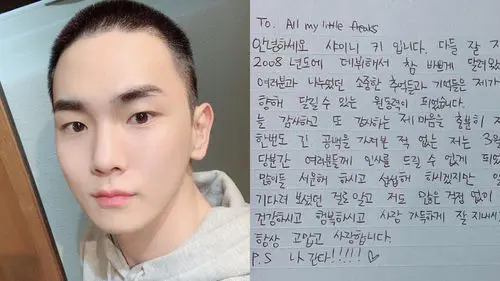 To. All my little freaks
안녕하세요 샤이니 키 입니다. 다들 잘 지
2008년도에 데뷔해서 참 바쁘게 달려왔
여러분과 나누었던 소중한 추억들과 기억들은 제가
향해 달릴 수 있는 원동력이 되었습니다.
늘 감사하고 또 감사하는 제 마음을 충분히 지
한번도 긴 공백을 가져본 적 없는 저는 3월
당분간 여러분들께 인사를 드릴 수 없게 되
많이들 서운해 하시고 섭섭해 하시겠지만 잊
기다려 보셨던 걸로 알고 저도 많은 걱정 없이
건강하시고 행복하시고 사랑 가득하게 잘 지내
항상 고맙고 사랑합니다.
P.S 나 간다!!!!! ♡